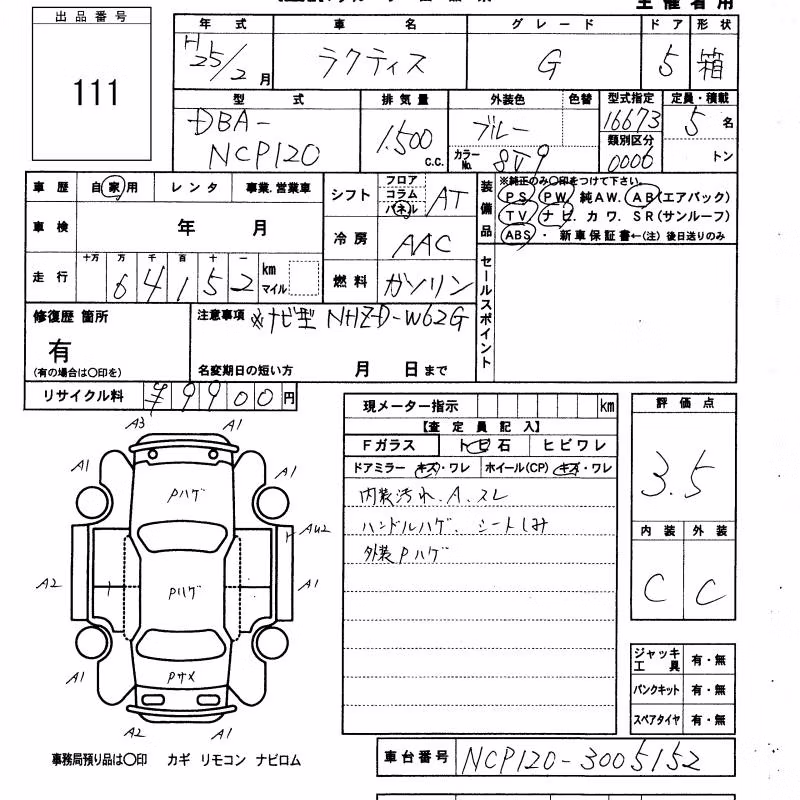 主催者用
出品番号
111
年式 車名 グレード ドア 形状
H25/2月 ラクティス G 5 箱
型式 排気量 外装色 色替 型式指定 定員・積載
DBA-NCP120 1,500c.c. ブルー 16673 5名
カラーNo. 8V9 類別区分 0006 トン
車歴 自家用 レンタ 事業.営業車
車検 年 月
走行 十万 万 千 百 十 一 km マイル
64152
シフト フロア コラム パネル AT
冷房 AAC
燃料 ガソリン
装備品 ※純正のみ〇印をつけて下さい。
PS PW 純AW. AB(エアバック)
TV ナビ. カワ. SR(サンルーフ)
ABS ・ 新車保証書←(注) 後日送りのみ
修復歴 箇所
有
(有の場合は〇印を)
注意事項 ※ナビ型 NHZD-W62G
名変期日の短い方 月 日まで
セールスポイント
リサイクル料 ¥9900円
現メーター指示 km
【査定員記入】
Fガラス トビ石 ヒビワレ
ドアミラー キズ・ワレ ホイール(CP) キズ・ワレ
内装汚れ.A.スレ
ハンドルハゲ. シートしみ
外装Pハゲ
評価点
3.5
内装 外装
C C
A3 A1
A1 A1
Pハゲ
AU2
A2 Pハゲ A1
A1 Pサメ A1
A2 A1
ジャッキ工具 有・無
パンクキット 有・無
スペアタイヤ 有・無
事務局預り品は〇印 カギ リモコン ナビロム
車台番号 NCP120-3005152